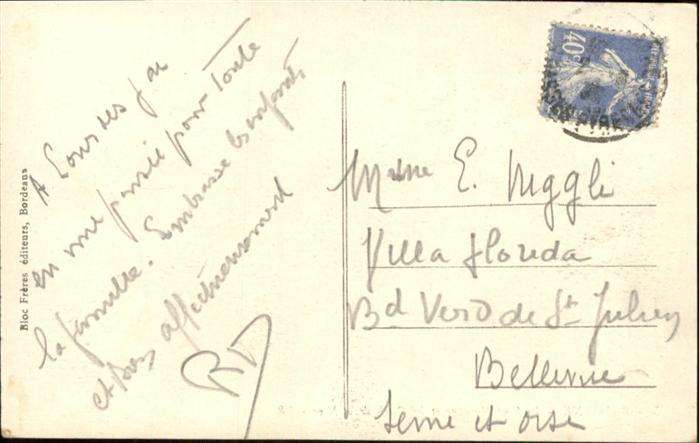 A Lourdes j'ai
eu une pensée pour toute
la famille. Embrasse les enfants
et bien affectueusement
RD
Bloc Frères éditeurs, Bordeaux
40c
Mme E. Neggli
Villa Florida
Bd Verd de St Julien
Bellevue
Seine et Oise